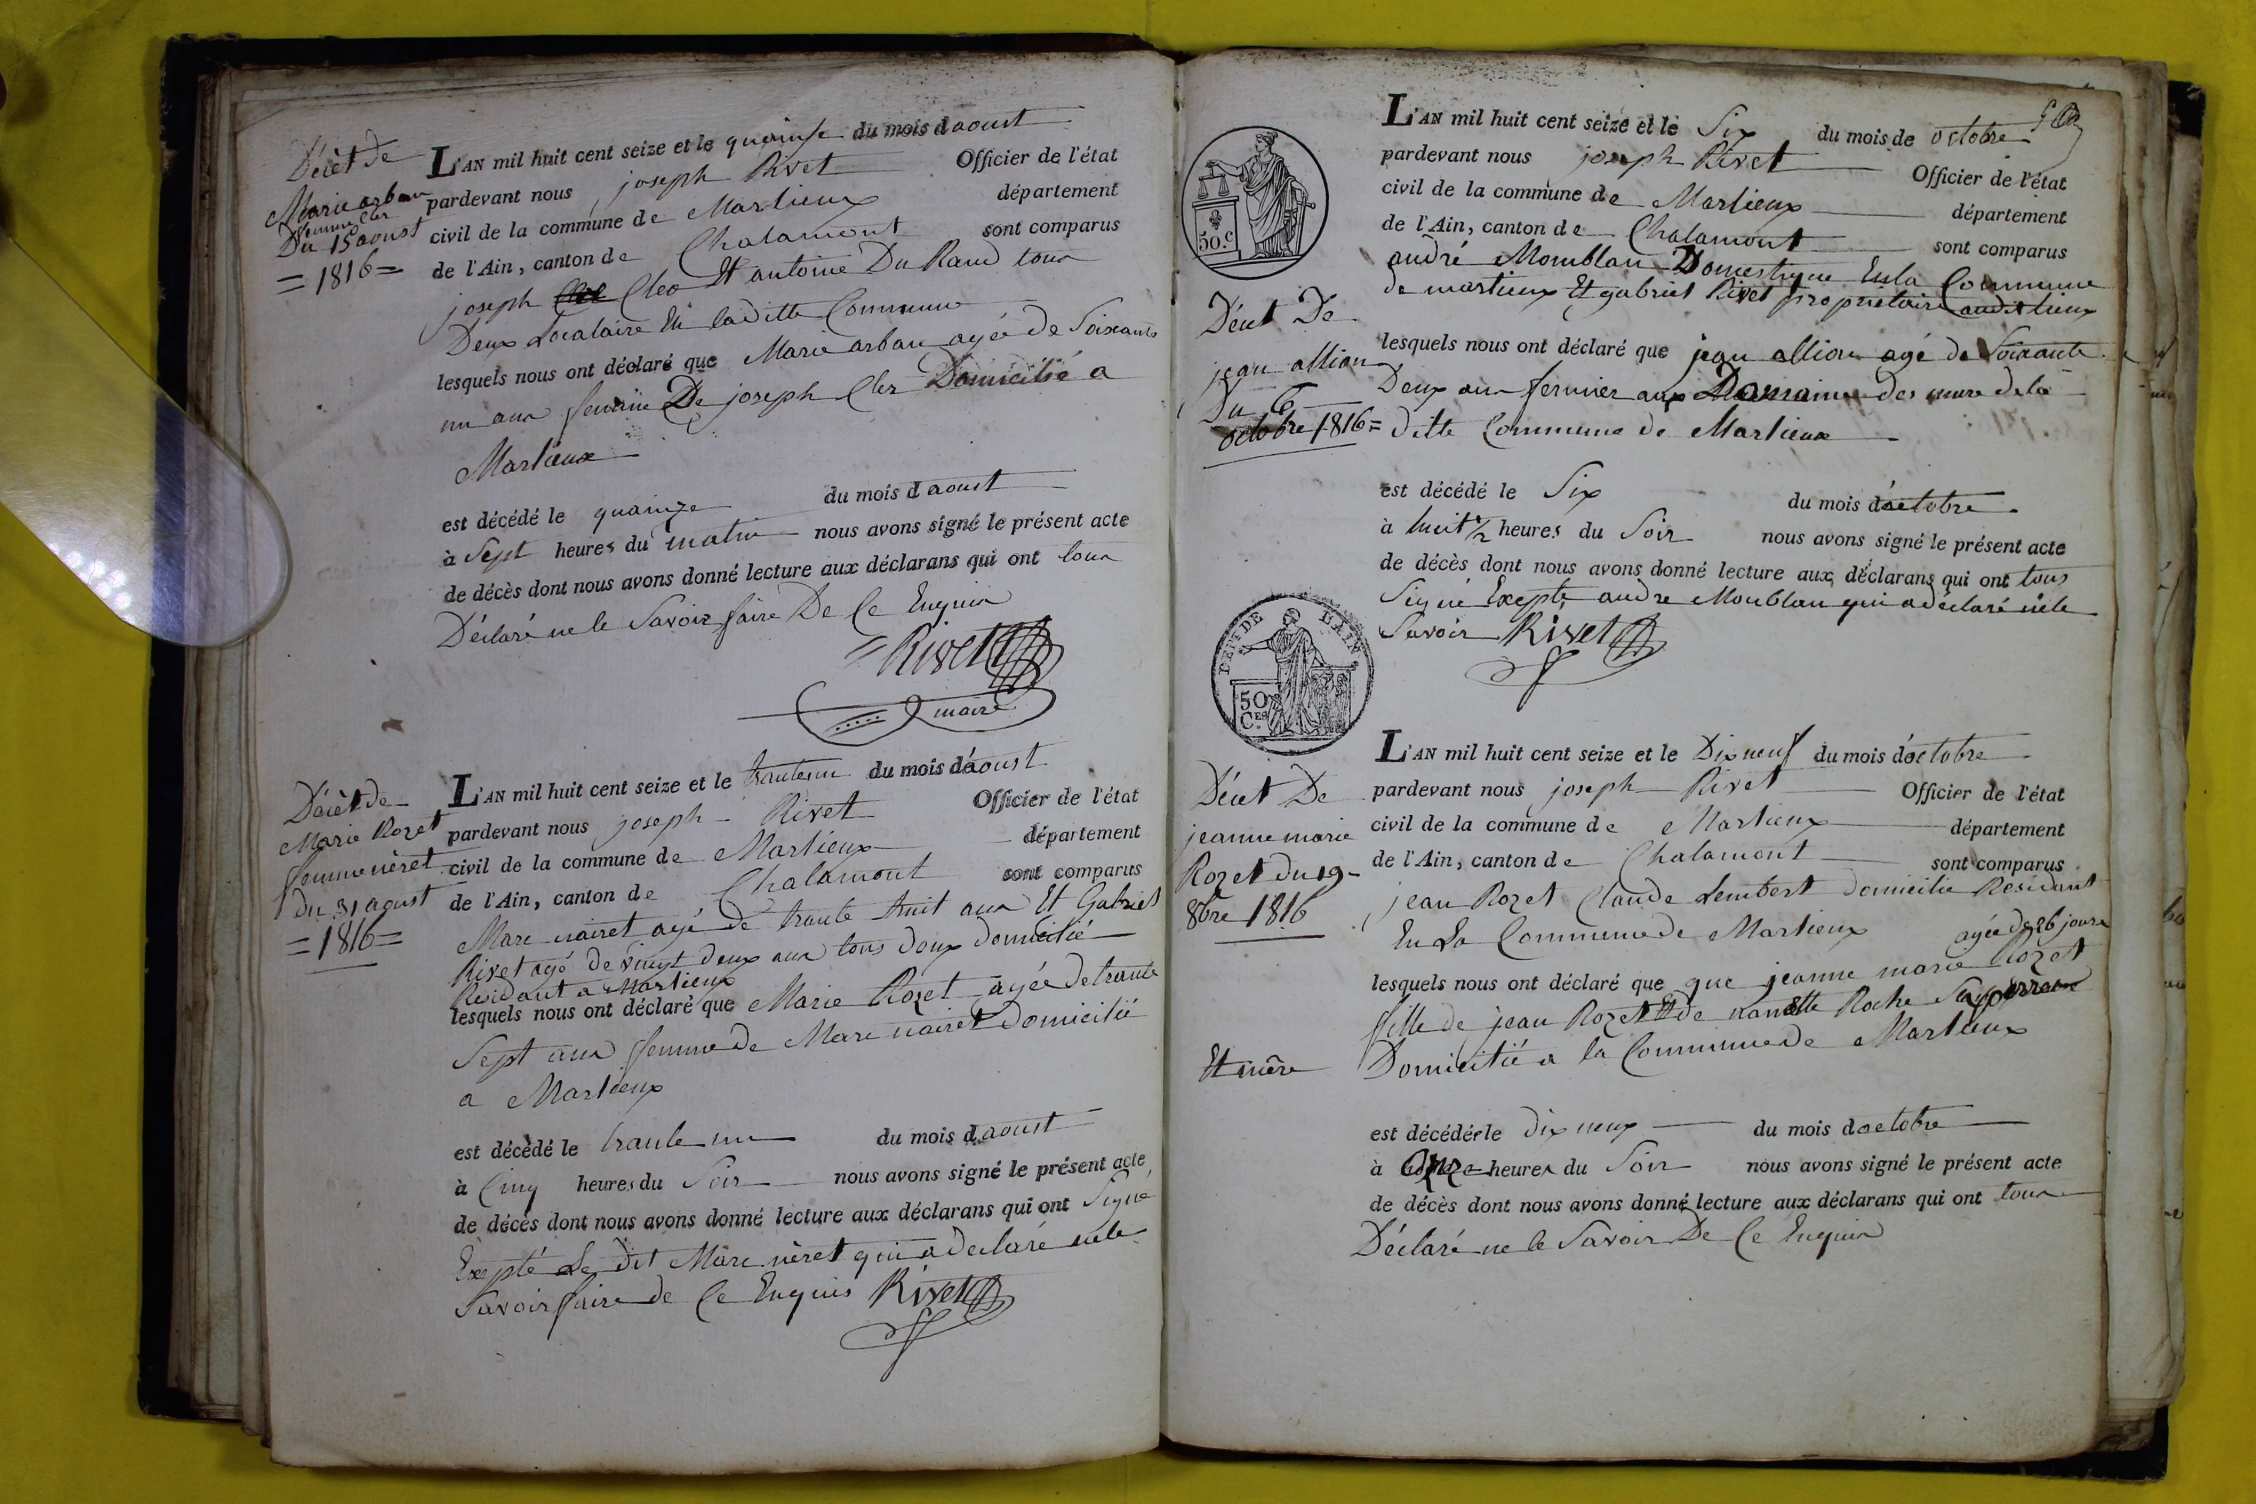 Décèt de
Marie arban
femme Cler
Du 15 aoust
= 1816 =
L'AN mil huit cent seize et le quainse du mois daoust
pardevant nous joseph Rivet Officier de l'état
civil de la commune de Marlieux département
de l'Ain, canton de Chalamont sont comparus
joseph Cleo Et antoine Du Rand tous
Deux Localaire En laditte Commune
lesquels nous ont déclaré que Marie arban agée de Soixante
un ans femme De joseph Cler Domicilié a
Marlieux
est décédé le quainze du mois daoust
à Sept heures du matin nous avons signé le présent acte
de décès dont nous avons donné lecture aux déclarans qui ont tous
Déclaré ne le Savoir faire De Ce Enquis
= Rivet
maire
Décèt de
Marie Rozet
femme nèret
du 31 aoust
= 1816 =
L'AN mil huit cent seize et le trante un du mois d'aoust
pardevant nous joseph Rivet Officier de l'état
civil de la commune de Marlieux département
de l'Ain, canton de Chalamont sont comparus
Marc nairet agé de trante huit ans Et Gabriel
Rivet agé de vingt deux ans tous deux domicilié
Residant a Marlieux
lesquels nous ont déclaré que Marie Rozet agée de trante
Sept ans femme de Marc nairet Domicilié
a Marlieux
est décédé le trante un du mois daoust
à Cinq heures du Soir nous avons signé le présent acte
de décès dont nous avons donné lecture aux déclarans qui ont Signé
Exepté Le dit Marc nèret qui a declaré ne le
Savoir faire de Ce Enquis Rivet
50.c
L'AN mil huit cent seize et le Six du mois de octobre
pardevant nous joseph Rivet Officier de l'état
civil de la commune de Marlieux département
de l'Ain, canton de Chalamont sont comparus
andré Momblan Domestique En la Commune
de marlieux Et gabriel Rivet propriétaire audit lieux
Décet De
jean allion
Du 6
octobre 1816 =
lesquels nous ont déclaré que jean allion agé de Soixante
Deux ans fermier aux Domaine des mure de la
ditte Commune de Marlieux
est décédé le Six du mois d'octobre
à huit 1/2 heures du Soir nous avons signé le présent acte
de décès dont nous avons donné lecture aux déclarans qui ont tous
Signé Exepte andre Monblan qui a déclaré ne le
Savoir Rivet
DEPT DE L'AIN
50
CES
Décet De
jeanne marie
Rozet du 19
8bre 1816
L'AN mil huit cent seize et le Dix neuf du mois d'octobre
pardevant nous joseph Rivet Officier de l'état
civil de la commune de Marlieux département
de l'Ain, canton de Chalamont sont comparus
jean Rozet Claude Lembert domicilié Residant
En La Commune de Marlieux agée de 26 jours
lesquels nous ont déclaré que que jeanne marie Rozet
fille de jean Rozet Et de nanette Roche Ses perre
Et mère
Domicilié a la Commune de Marlieux
est décédée le dix neux du mois doctobre
à onze heures du Soir nous avons signé le présent acte
de décès dont nous avons donné lecture aux déclarans qui ont tous
Déclaré ne le Savoir De Ce Enquis